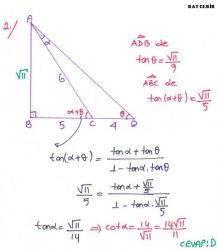 BATCEBİR
2.)
A
α
√11
6
α+θ
θ
B
5
C
4
D
ADB de
tanθ = √11/9
ABC de
tan(α+θ) = √11/5
tan(α+θ) = tanα + tanθ / 1 - tanα.tanθ
√11/5 = tanα + √11/9 / 1 - tanα.√11/9
tanα = √11/14 ⇒ cotα = 14/√11 = 14√11/11
CEVAP: D